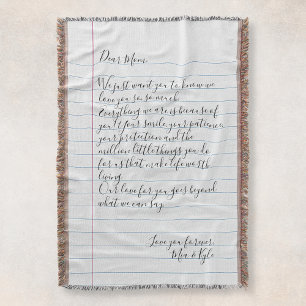 Dear Mom,
We just want you to know we
love you so so much.
Everything we are is because of
you & your smile, your patience,
your protection and the
million little things you do
for us that make life worth
living.
Our love for you goes beyond
what we can say.
Love you forever,
Mia & Kyle